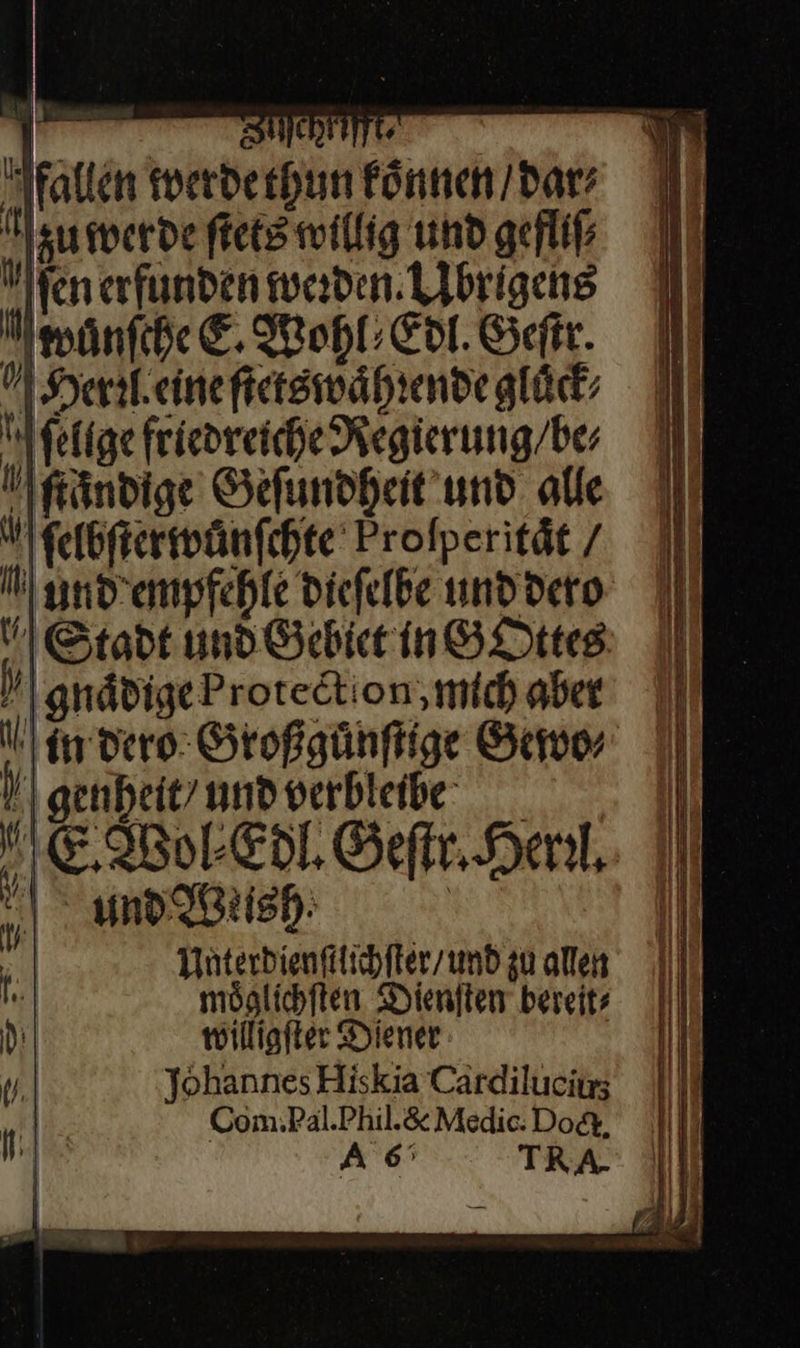 Zuſchrifft.
fallen werde thun koͤnnen / dar⸗
zu werde ſtets willig und gefliſ⸗
ſen erfunden weꝛden. Ubrigens
wuͤnſche E. Wohl⸗Edl. Geſtr.
Herꝛl. eine ſtetswaͤhꝛende gluͤck⸗
ſelige friedreiche Regierung / be⸗
ſtaͤndige Geſundheit und alle
ſelbſterwuͤnſchte Proſperitaͤt /
und empfehle dieſelbe und dero
Stadt und Gebiet in GOttes
gnaͤdige Protection, mich aber
in dero Großguͤnſtige Gewo⸗
genheit / und verbleibe
E. Wol⸗Edl. Geſtr. Herꝛl.
und Weish.
Unterdienſtlichſter / und zu allen
moͤglichſten Dienſten bereit⸗
willigſter Diener
Johannes Hiskia Cardilucius
Com. Pal. Phil. & Medic. Doct.
A 6 TRA-